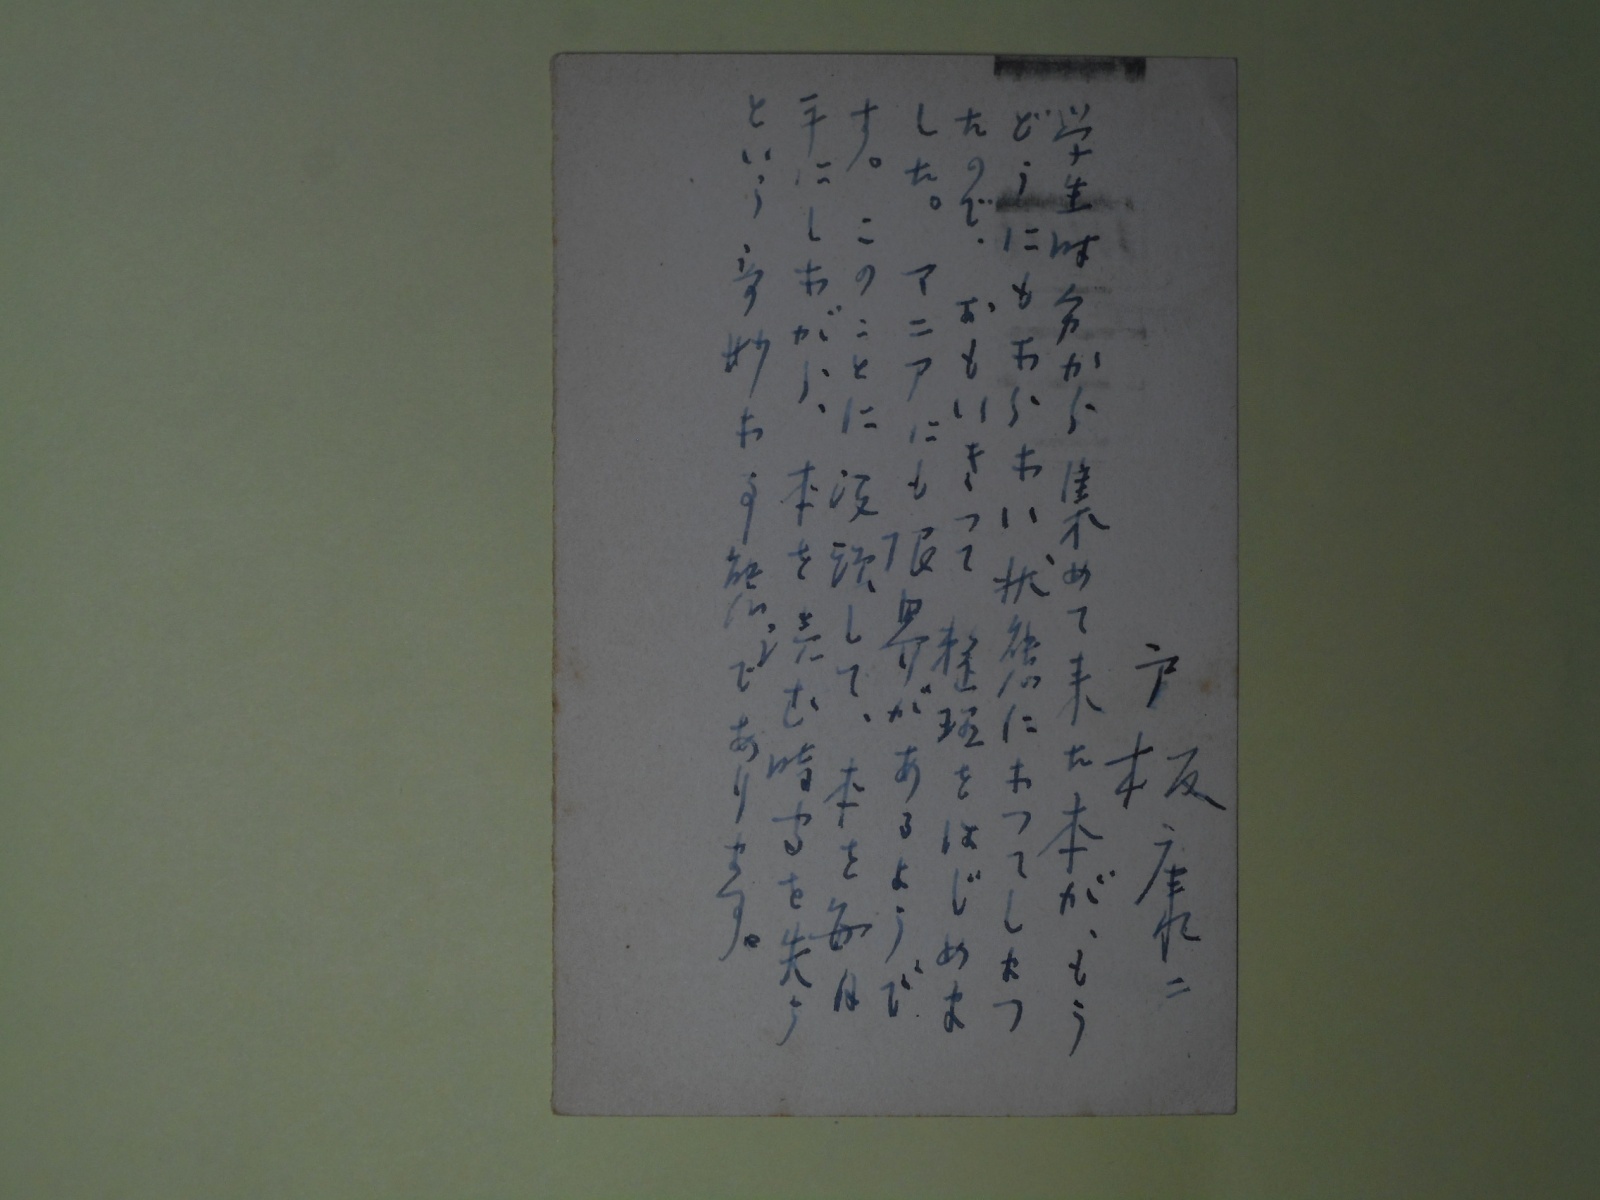 戸板康二
学生時分から集めて来た本が、もう
どうにもならない状態になつてしまつ
たので、おもいきつて整理をはじめま
した。マニアにも限界があるようで
す。このことに没頭して、本を毎日
手にしながら、本を読む時間を失う
という奇妙なる態でであります。